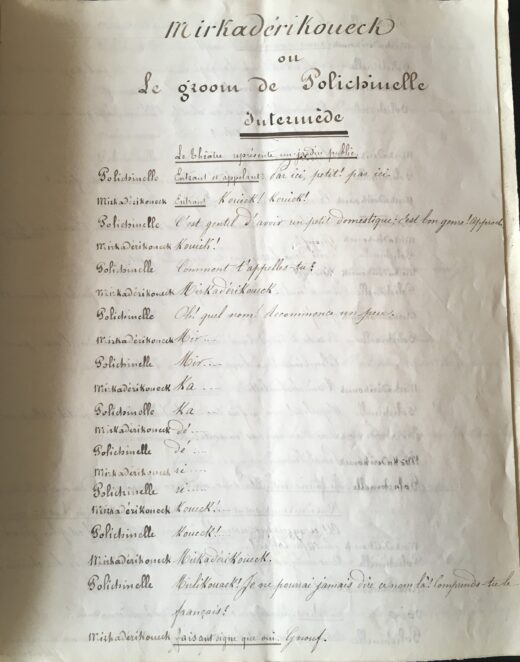 Mirkadérikoueck
ou
Le groom de Polichinelle
Intermède
Le théâtre représente un jardin public.
Polichinelle Entrant et appelant: Par ici, petit! par ici
Mirkadérikoueck Entrant Koueck! Koueck!
Polichinelle C'est gentil d'avoir un petit domestique: c'est bon genre! Approch
Mirkadérikoueck Koueck!
Polichinelle Comment t'appelles-tu?
Mirkadérikoueck Mirkadérikoueck
Polichinelle Oh! quel nom! Recommence un peu.
Mirkadérikoueck Mir....
Polichinelle Mir....
Mirkadérikoueck Ka....
Polichinelle Ka....
Mirkadérikoueck dé....
Polichinelle dé....
Mirkadérikoueck ri....
Polichinelle ri....
Mirkadérikoueck koueck!...
Polichinelle koueck!...
Mirkadérikoueck Mirkadérikoueck.
Polichinelle Je ne pourrai jamais dire ce nom là! Comprends-tu le
français?
Mirkadérikoueck faisant signe que oui. Gnouf.